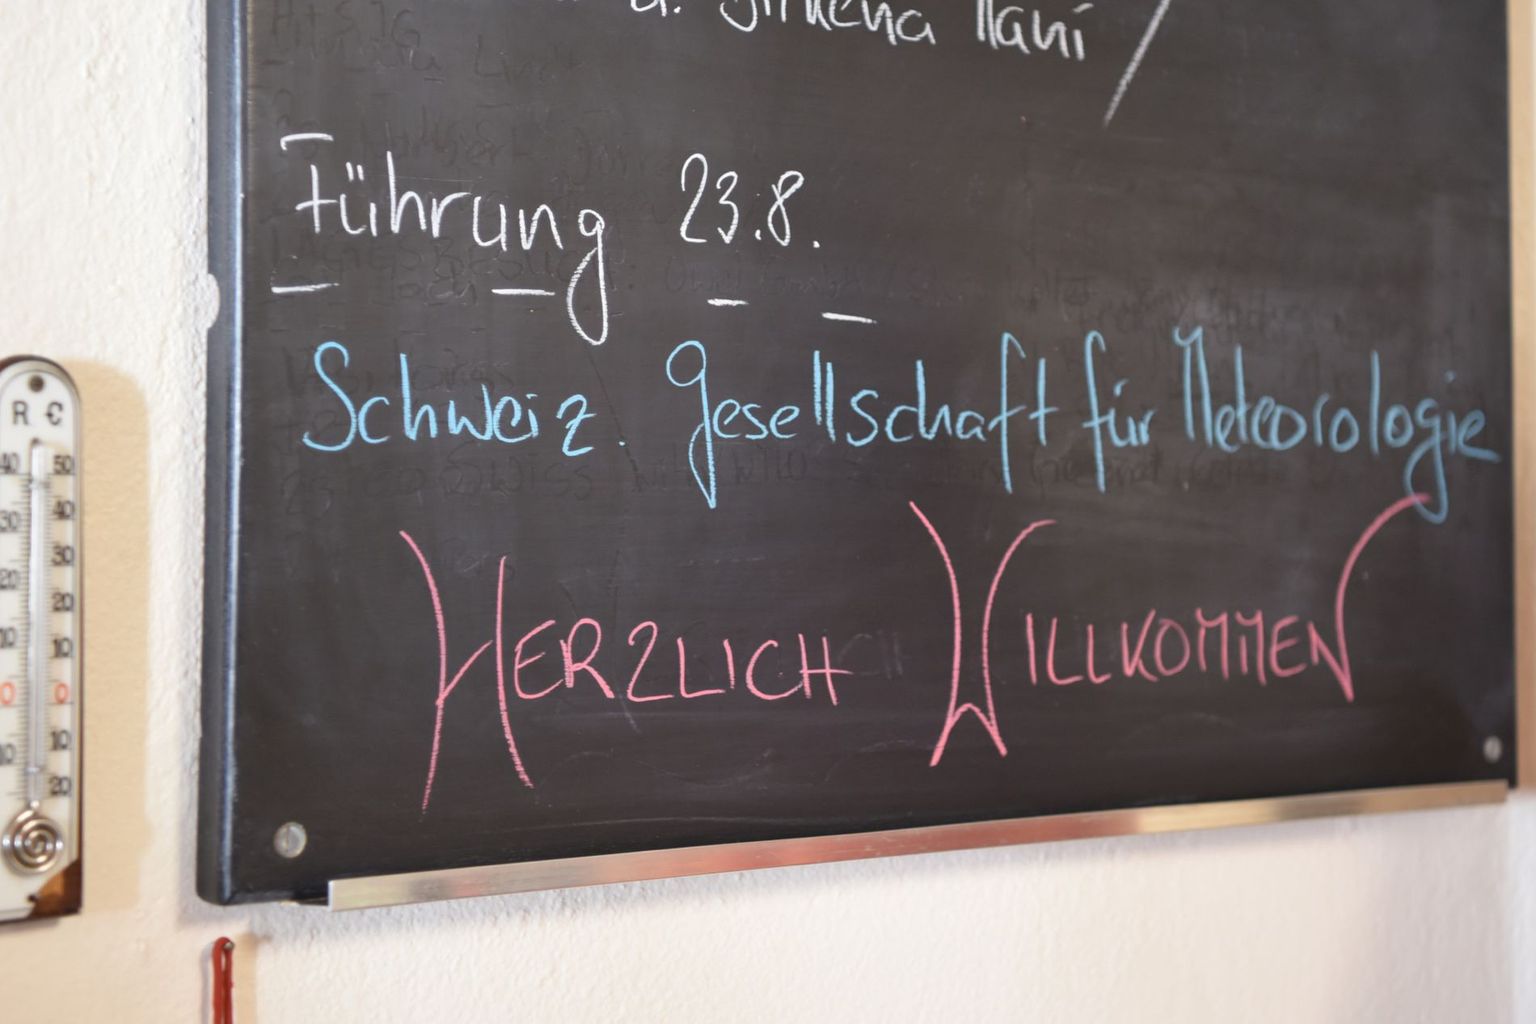 Führung 23.8.
Schweiz. Gesellschaft für Meteorologie
HERZLICH WILLKOMMEN
R C
40 50
30 40
30
20 20
10 10
0 0
10 10
20